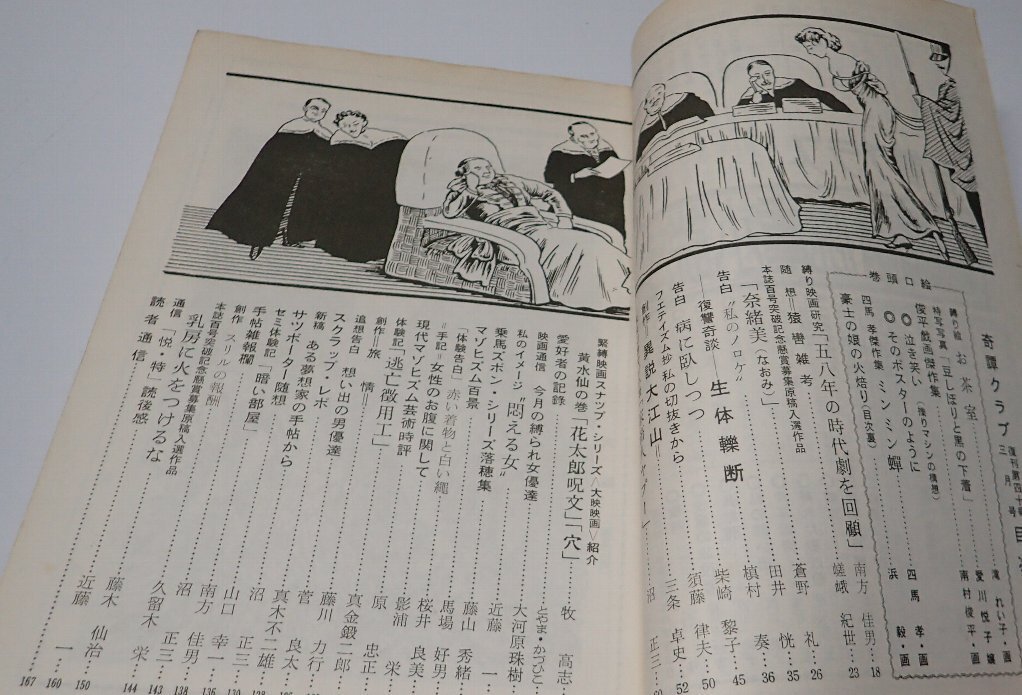 奇譚クラブ
復刊第四十号
三月号
目次
絵
縛り絵 お茶室 滝れい子・画
特写写真「豆しぼりと黒の下着」 愛川悦子嬢
口 俊平戯画傑作集(縛りマシンの構想) 南村俊平・画
◎泣き笑い
◎そのポスターのように
巻頭 四馬孝傑作集 ミンミン蟬 四馬孝・画
豪士の娘の火焙り(目次裏) 浜毅・画
縛り映画研究「五八年の時代劇を回顧」 南方佳男 18
嵯峨紀世 23
随想=猿轡雑考 蒼野礼 26
本誌百号突破記念懸賞募集原稿入選作品
「奈緒美(なおみ)」 田井恍 35
告白“私のノロケ” 槙村奏 36
――復讐奇談――生体轢断 柴崎黎子 45
告白 病に臥しつつ 須藤律夫 50
フェティシズム抄=私の切抜きから 三条卓史 52
創作 異説大江山= 沼正三
緊縛映画スナップ・シリーズ/大映映画/紹介
黄水仙の巻「花太郎呪文」「穴」
愛好者の記録 牧高志
映画通信 今月の縛られ女優達 とやま・かづひこ
私のイメージ“悶える女” 大河原珠樹
乗馬ズボン・シリーズ落穂集 近藤一
マゾヒズム百景 藤山秀緒
「体験告白」赤い着物と白い縄 馬場好男
=手記=女性のお腹に関して 桜井良美
現代マゾヒズム芸術時評 影浦栄
体験記「逃亡徴用工」 原忠正
創作=旅情=
追想告白 想い出の男優達 真金鍛二郎
スクラップ・レポ 藤川力行
新稿 ある夢想家の手帖から 沼正三
サツポーター随想 菅良太
セミ体験記「暗い部屋」 真木不二雄
手帖雑報欄 沼正三
創作 スリルの報酬 山口幸一 136
本誌百号突破記念懸賞募集原稿入選作品 南方佳男 138
乳房に火をつけるな 沼正三 143
通信「悦・特」読後感 久留木栄 144
読者通信 藤木仙治 150
近藤一 160
167